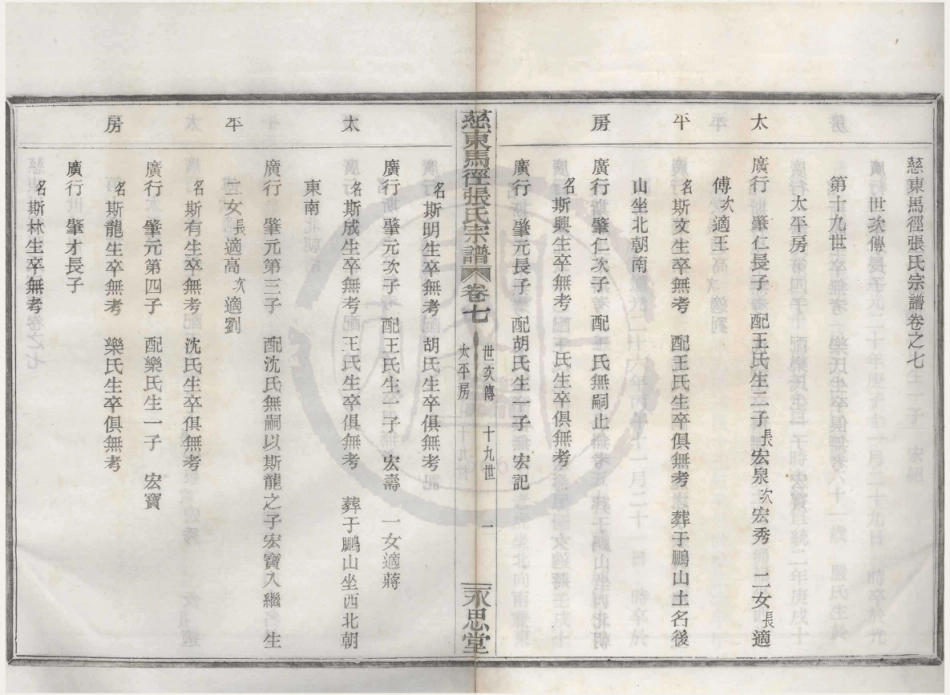 慈東馬徑張氏宗譜卷之七
世次傳
第十九世
太平房
太 廣行 肇仁長子 配王氏生二子長宏泉次宏秀 二女長適
傅次適王
平 名斯文生卒無考 配王氏生卒俱無考 葬于鵬山土名後
山坐北朝南
房 廣行 肇仁次子 配王氏無嗣止
名斯興生卒無考 王氏生卒俱無考
廣行 肇元長子 配胡氏生一子 宏記
慈東馬徑張氏宗譜 卷七 世次傳 太平房 十九世 一 永思堂
名斯明生卒無考 胡氏生卒俱無考
廣行 肇元次子 配王氏生一子 宏壽 一女適蔣
太 名斯成生卒無考 王氏生卒俱無考 葬于鵬山坐西北朝
東南
廣行 肇元第三子 配沈氏無嗣以斯龍之子宏寶入繼 生
平 二女長適高次適劉
名斯有生卒無考 沈氏生卒俱無考
廣行 肇元第四子 配樂氏生一子 宏寶
房 名斯龍生卒無考 樂氏生卒俱無考
廣行 肇才長子
名斯林生卒無考